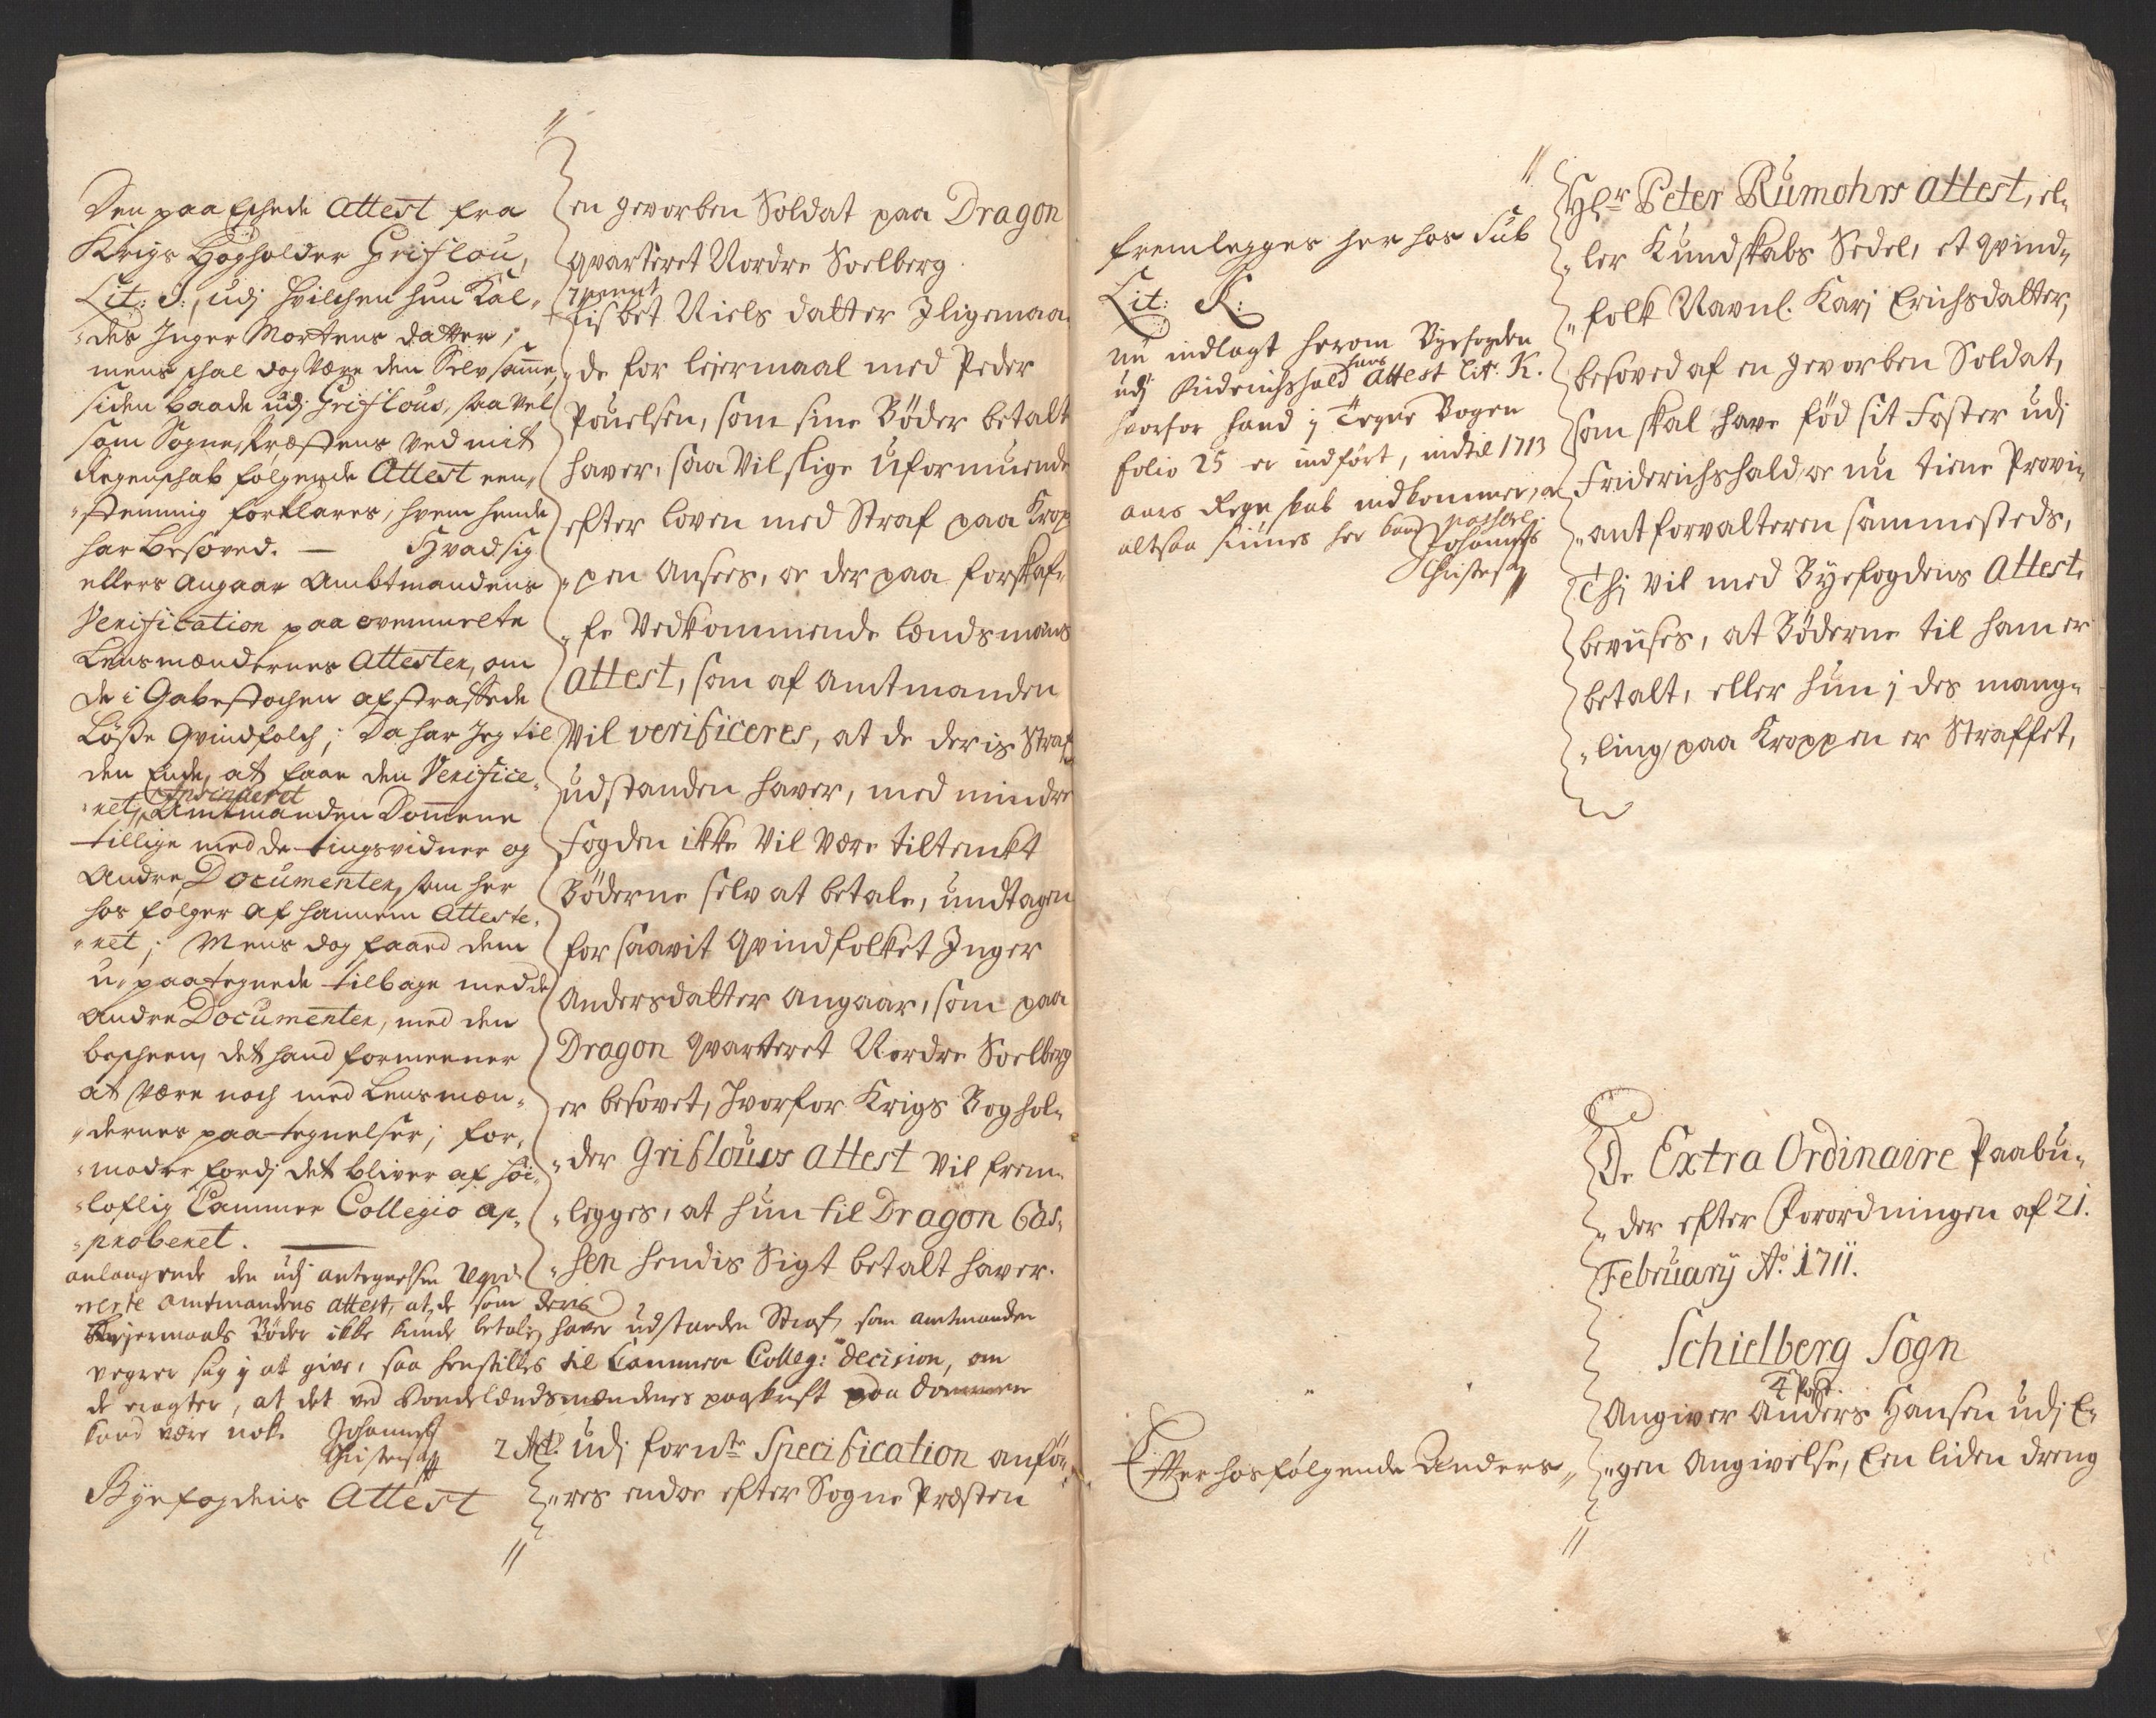 Den paaEschede Attest fra
Krigs Bogholder Griflou,
Lit: I:, udj hvilchen hun Kal-
des Inger Mortens datter;
mens schal dog være den Selv samme,
siden baade udj Griflous, saavel
som Sogne Præstens ved mit
Regenschab følgende Attest een-
stemmig forklares, hvem hende
har besoved. — Hvad sig
ellers angaar Ambtmandens
Verification paa ovenmelte
Lensmændernes Attester, om
de i Gabestochen afstraffede
Løsse Qvindfolch; Da har Jeg til
den Ende, at faae den Verifice-
ret, Insinueret Amtmanden Dommene
tillige med de tingsvidner og
Andre Documenter, som her
hos følger af hannem Atteste-
ret; Mens dog faaed dem
u-paategnede tilbage med de
Andre Documenter, med den
bescheen, det hand formeener
at være noch med Lensmæn-
dernes paategnelser; for-
moder fordj det bliver af høi-
loflig Cammer Collegio ap-
proberet. —
anlangende den udj antegnelsen
amtmandens attest, at de som deris
Leyermaals Bøder ikke kunde betale, haver udstanden Straf, som amtmanden
vegrer sig ej at give, saa henstilles til Cammer Colleg: decision, om
de eragter, at det ved Bondelendsmændenes paaskrift paa dommen
kand være nok. Johannes
Christensen
Byefogdens Attest
en gevorben Soldat paa Dragon
qvarteret Nordre Soelberg.
Lisbet Niels datter Iligemaa-
de for lejermaal med Peder
Pouelsen, som sine Bøder betalt
haver, saa vil slige uformuende
efter loven med Straf paa Krop-
pen ansees, oc der paa forskaf-
fe Vedkommende lændsmans
attest, som af Amtmanden
Vil verificeres, at de deris Straf
udstanden haver, med mindre
Fogden ikke Vil være tiltenkt
Bøderne selv at betale, undtagen
for saavit qvindfolket Inger
Andersdatter angaar, som paa
Dragon qvarteret Nordre Soelberg
er besovet, hvorfor Krigs Boghol-
der Griflouvs attest vil frem-
legges, at hun til Dragon Cas-
sen hendis Sigt betalt haver.
2 Act: udj fornte Specification anfø-
res endoc efter Sogne Præsten
fremlegges her hos Sub
Lit: K:
nu indlagt herom Byefogden
udj Fridrichshald hans Attest lit: K.
hvorfor hand j Tegne Bogen
folio 25 er indført, indtil 1713
aars Regnskab indkommer, oc
altsaa findes her kand passere
Johannes
Christensen
Efter hosfølgende Anders
Hr: Peter Rumohrs attest, el-
ler Kundskabs Sedel, et qvind-
folk Navnl. Karj Erichsdatter,
besoved af en gevorben Soldat,
som skal have fød sit Foster udj
Friderichshald, oc nu tiene Provi-
antforvalteren sammesteds,
Thj vil med Byefogdens Attest
bevises, at Bøderne til ham er
betalt, eller hun j des mang-
ling paa Kroppen er Straffet,
De Extra Ordinaire Paabu-
der efter Forordningen af 21.
February Ao. 1711.
Schielberg Sogn
4 Post.
Angiver Anders Hansen udj E-
gen Angivelse, Een liden dreng